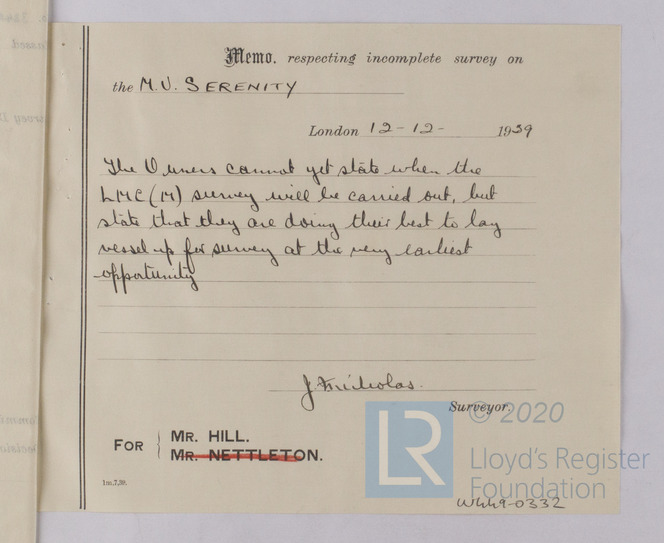 Memo. respecting incomplete survey on
the M.V. SERENITY
London 12-12- 1939
The Owners cannot yet state when the
LMC (M) survey will be carried out, but
state that they are doing their best to lay
vessel up for survey at the very earliest
opportunity
J. F. Nicholas.
Surveyor.
FOR MR. HILL.
MR. NETTLETON.
1m,7,39.
© 2020
LR
Lloyd's Register
Foundation
W449-0332